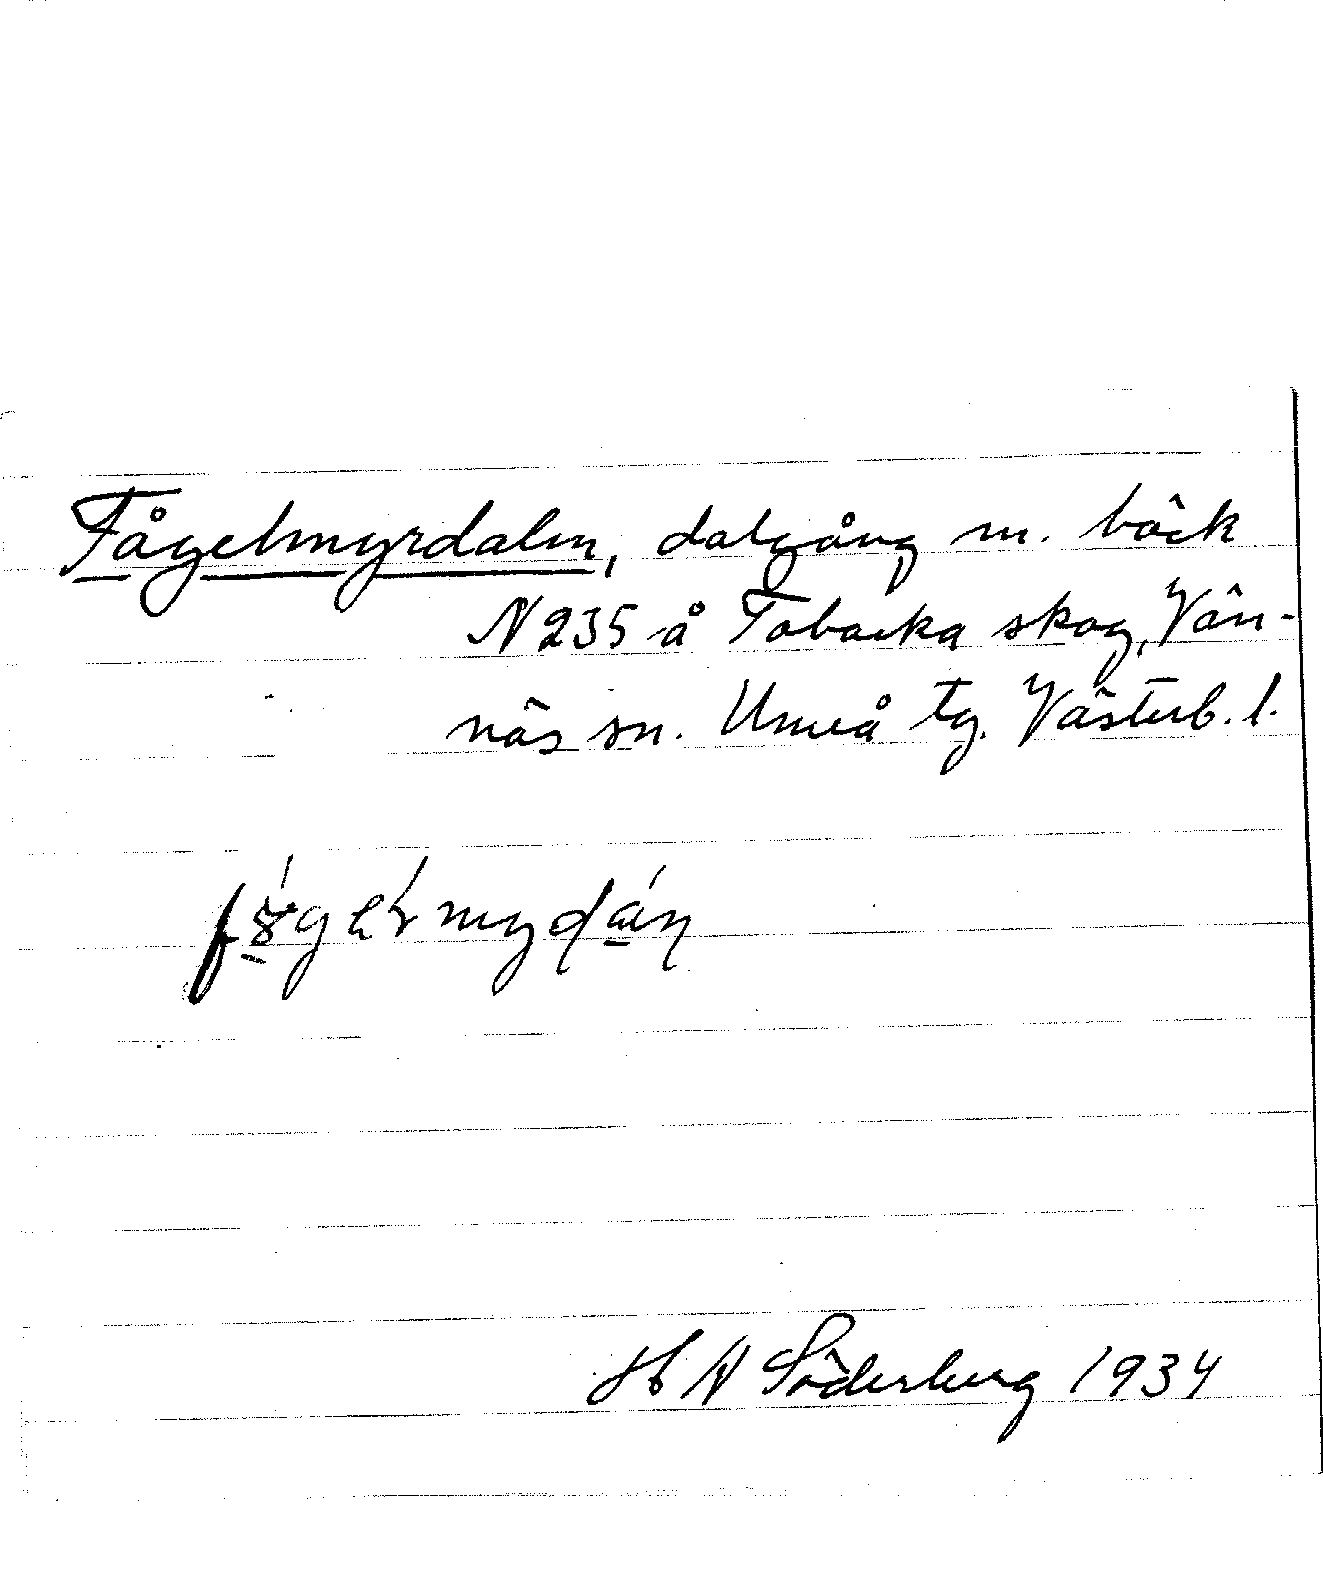 Fågelmyrdalen, dalgång m. bäck
N 235 å Tobacka skog, Vän-
näs sn. Umeå tg. Västerb. l.
H N Söderberg 1934